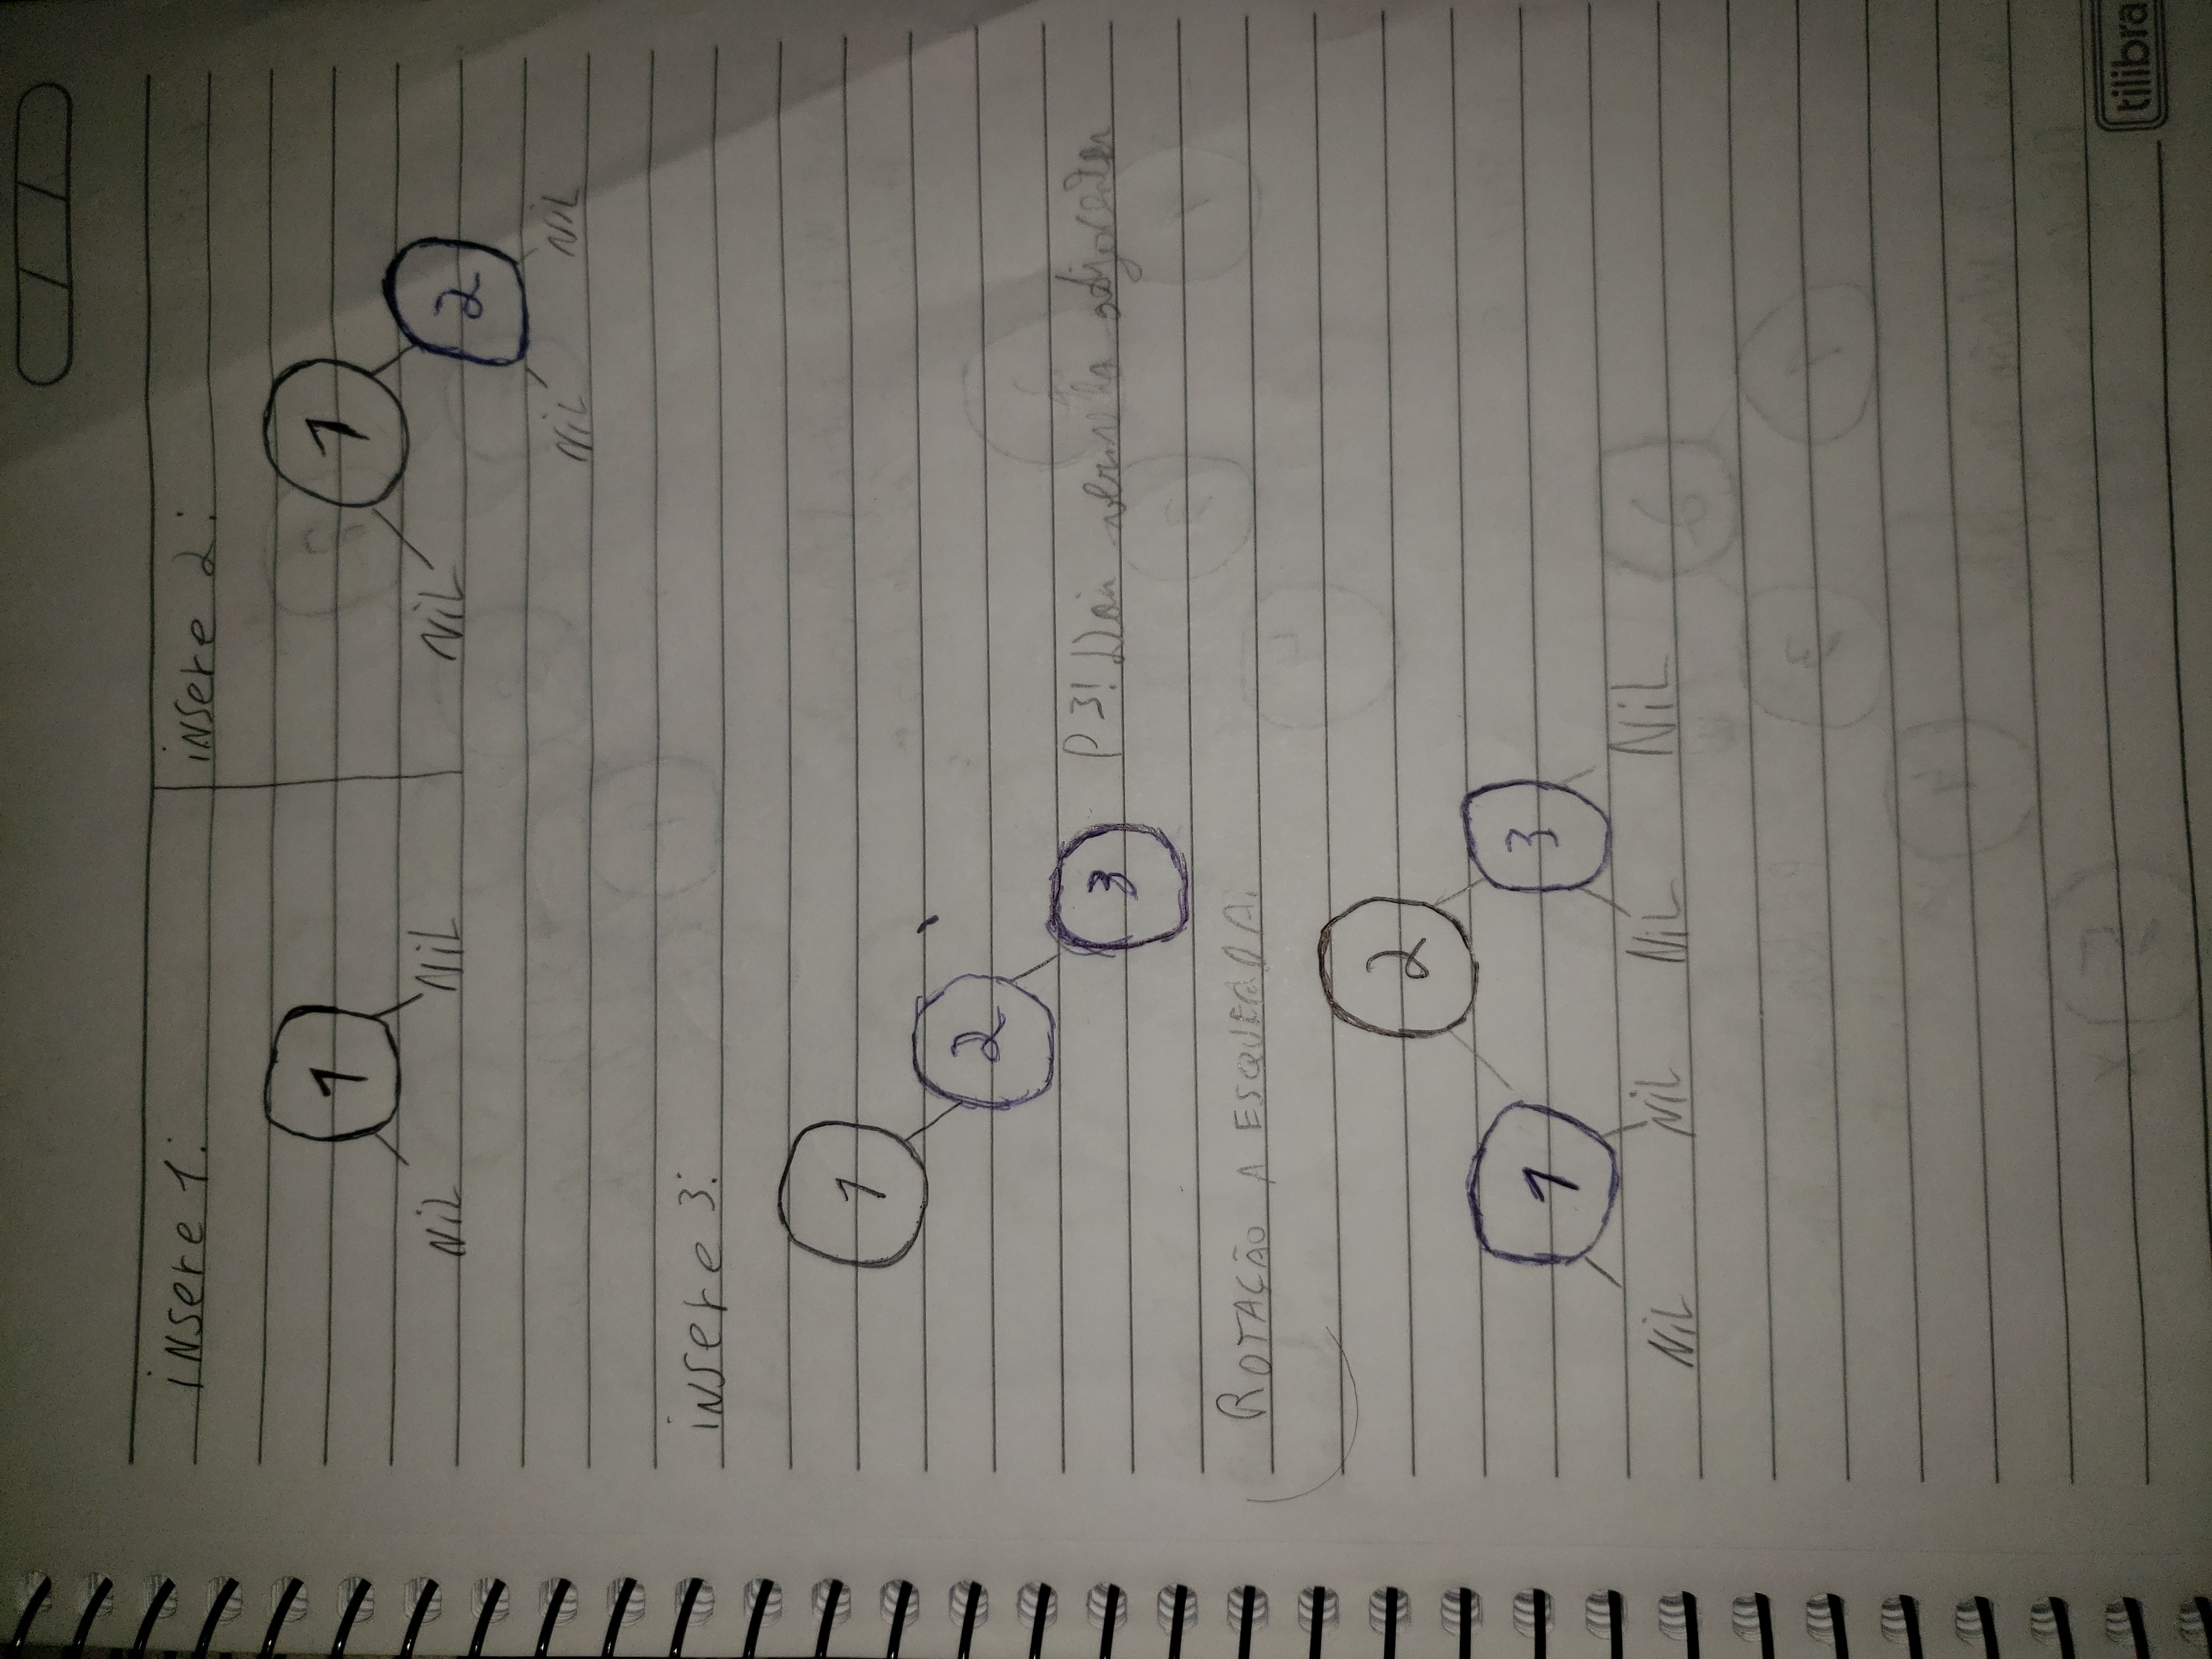 insere 1:
insere 2:
1
Nil
Nil
1
Nil
2
Nil
Nil
insere 3:
1
2
3
P3! Dois vermelho adjacentes
ROTAÇÃO A ESQUERDA:
2
1
3
Nil
Nil
Nil
Nil
tilibra